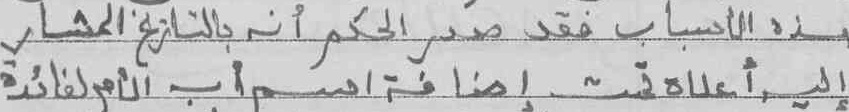 هذه الأسباب فقد صدر الحكم أنه بالتاريخ المشار
إليه أعلاه تمت إضافة اسم أب الأم لفائدة